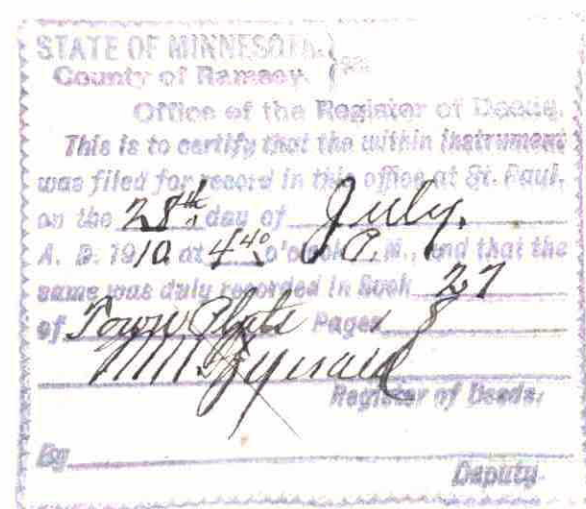 STATE OF MINNESOTA. } ss.
County of Ramsey.
Office of the Register of Deeds.
This is to certify that the within instrument
was filed for record in this office at St. Paul,
on the 28th day of July.
A. D. 1910 at 4 40 o'clock P. M., and that the
same was duly recorded in Book 27
of Town Plats Page 8
Register of Deeds.
By
Deputy.